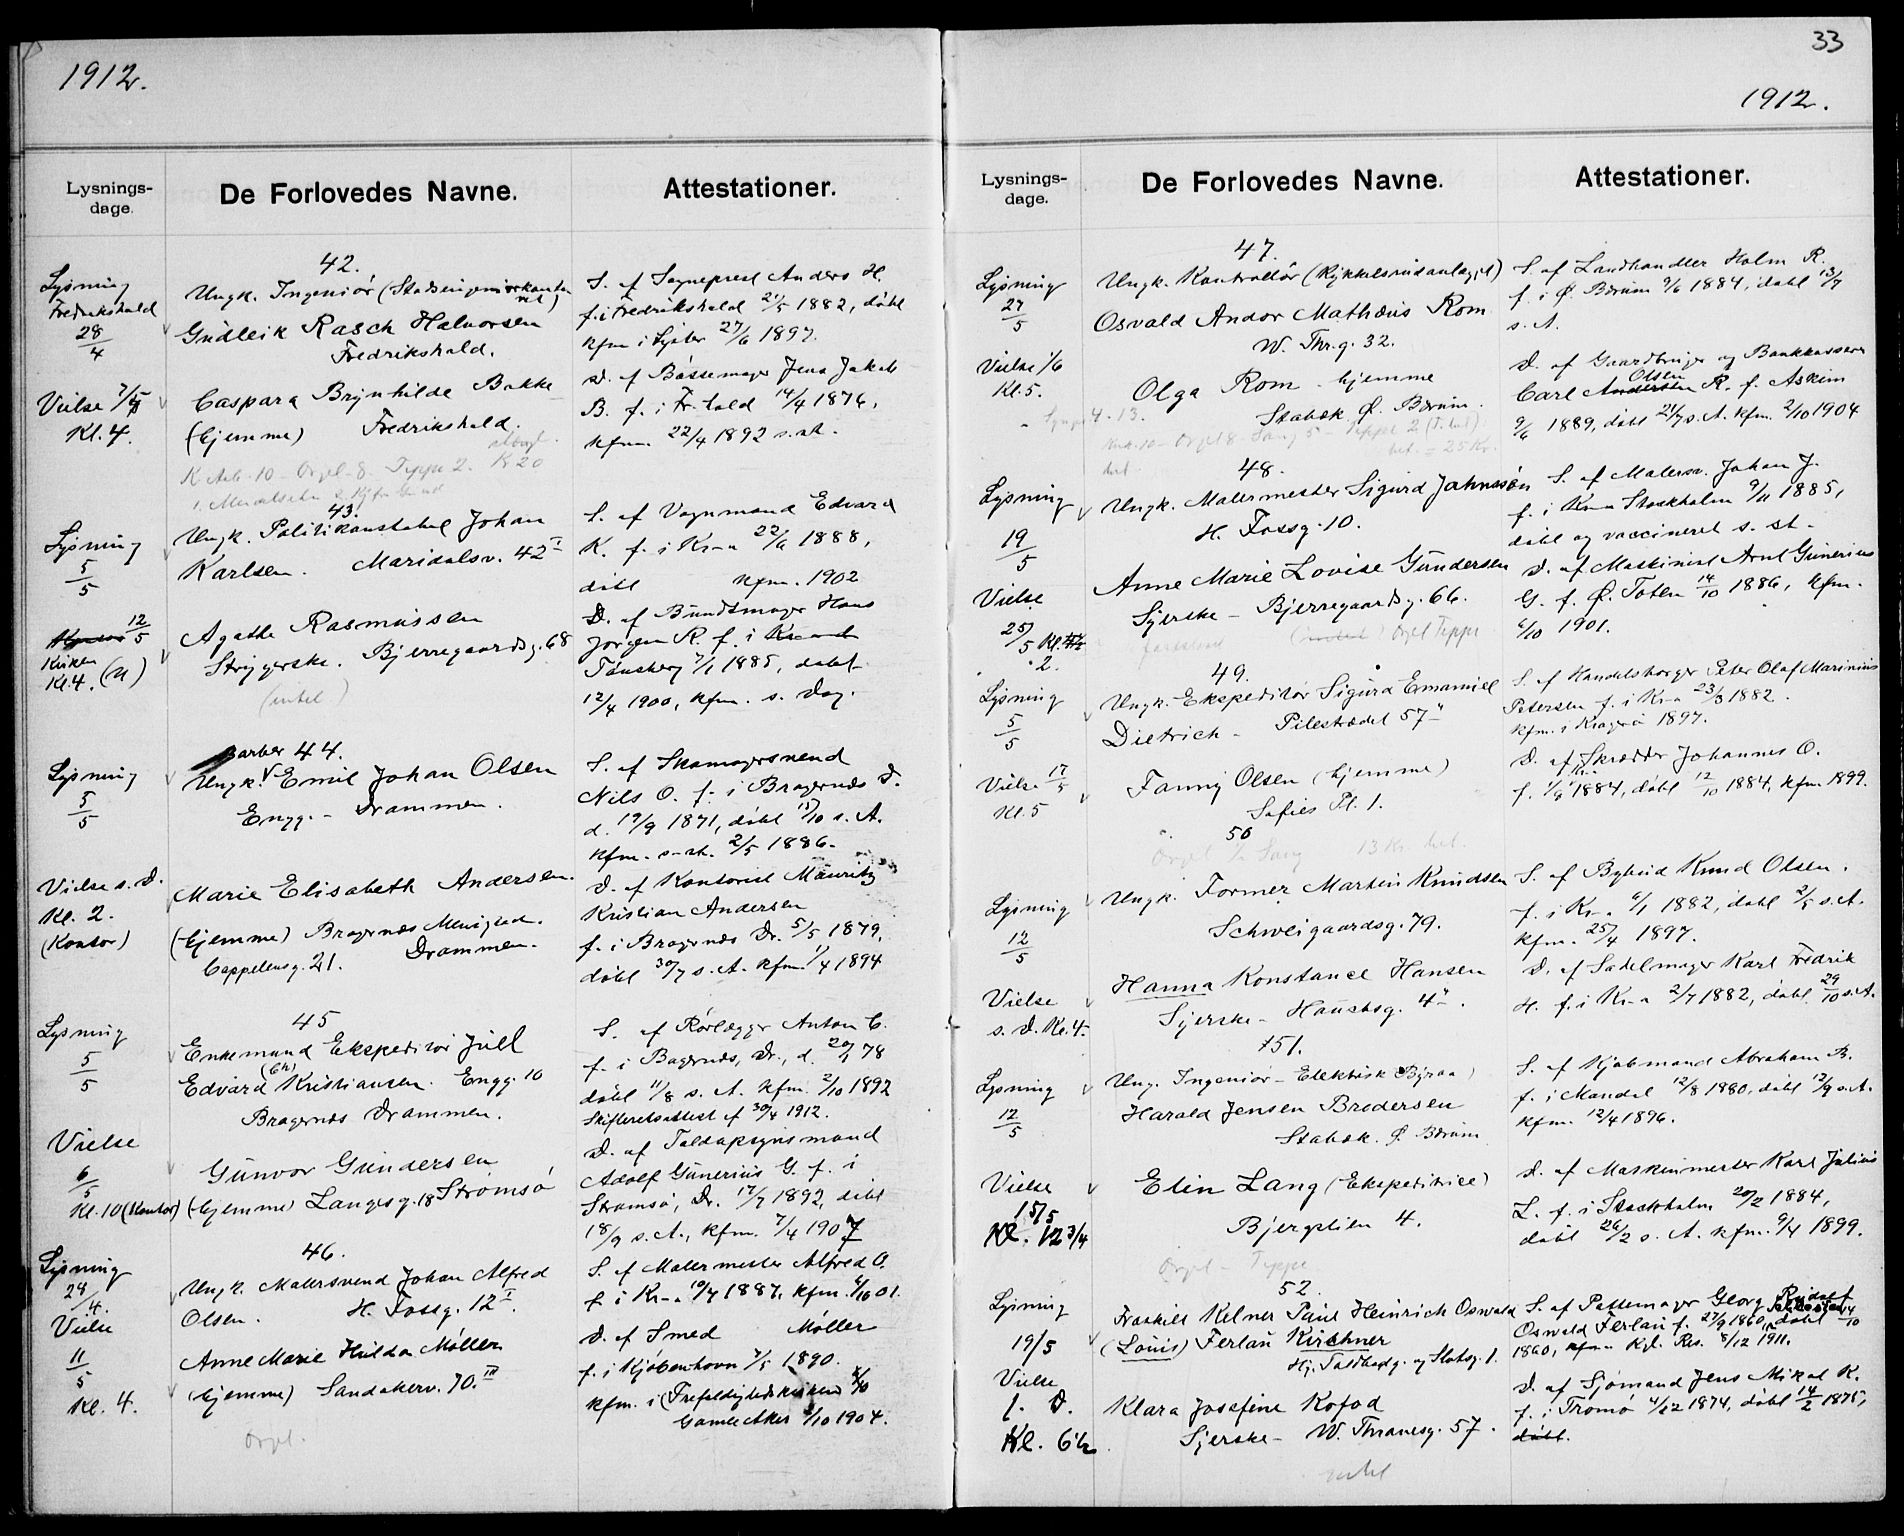 1912.
Lysnings-
dage.
De Forlovedes Navne.
Attestationer.
42.
Lysning
Fredrikshald
28/4
Vielse 7/5
Kl. 4.
Ungk. Ingeniør (Stadsingeniørkontoret)
Gudleik Rasch Halvorsen
Fredrikshald.
Caspara Brynhilde Bakke
(hjemme) Fredrikshald.
Orgel-8. Teppe 2.
S. af Sogneprest Anders H.
f. i Fredrikshald 21/5 1882, döbt
kfm. i 27/6 1897.
D. af Bössemager Jens Jakob
B. f. i Fr.hald 14/4 1876,
kfm. 22/4 1892 s. st.
43.
Lysning
5/5
12/5
Kirken
Kl. 4. (U)
Ungk. Politikonstabel Johan
Karlsen. Maridalsv. 42 I
Agathe Rasmussen
Strygerske. Bjerregaardsg. 68
(enkel)
S. af Vognmand Edvard
K. f. i Kr-a 22/6 1888,
döbt kfm. 1902
D. af Bundtmager Hans
Jörgen R. f. i
Tönsberg 7/1 1885, döbt
12/4 1900, kfm. s. Dag.
44.
Lysning
5/5
Vielse s. D.
Kl. 2.
(Kontor)
Barber
Ungk. Emil Johan Olsen
Engg. - Drammen.
Marie Elisabeth Andersen.
(hjemme) Bragernes Menighed.
Cappelensg. 21. Drammen.
S. af Skomagersvend
Nils O. f. i Bragernes D.
d. 19/9 1871, döbt 15/10 s. A.
kfm. s. st. 2/5 1886.
D. af Kontorist Mauritz
Kristian Andersen
f. i Bragernes Dr. 5/5 1879,
döbt 30/7 s. A. kfm. 1/4 1894
45
Lysning
5/5
Vielse
6/5
Kl. 10 (Kontor)
Enkemand Ekspeditör Juel
Edvard (Ch) Kristiansen. Engg. 10
Bragernes Drammen.
Gunvor Gundersen
(hjemme) Langesg. 18 Strømsö
S. af Rörlægger Anton C.
f. i Bragernes, Dr., d. 78
döbt 11/8 s. A. kfm. 2/10 1892
Skifteretsattest af 30/4 1912.
D. af Toldopsynsmand
Adolf Gunerius G. f. i
Strömsö, Dr. 17/7 1892, döbt
18/9 s. A., kfm. 7/4 1907
46.
Lysning
28/4.
Vielse
11/5
Kl. 4.
Ungk. Malersvend Johan Alfred
Olsen. H. Fossg. 12 I.
Anne Marie Hulda Möller
(hjemme) Sandakerv. 70. III
Orgel.
S. af Malermester Alfred O.
f. i Kr-a 10/7 1887, kfm. 6/10 01.
D. af Smed Möller
f. i Kjöbenhavn 7/5 1890.
kfm. i (Trefoldighedskirken
Gamle Aker 2/10 1904.
33
1912.
Lysnings-
dage.
De Forlovedes Navne.
Attestationer.
47.
Lysning
27/5
Vielse 1/6
Kl. 5.
Ungk. Kontrollör (Kykkelsrudanlægget)
Osvald Andor Mathæus Rom
W. Thr.g. 32.
Olga Rom - hjemme
Stabæk Ø. Bærum.
S. af Landhandler Holm R.
f. i Ø. Bærum 9/6 1884, döbt 13/7
s. A.
D. af Gaardbruger og Bankkasserer
Carl Andersen Olsen R. f. Askim
9/6 1889, döbt 21/7 s. A. kfm. 2/10 1904
48.
Lysning
19/5
Vielse
25/5 Kl.
2.
Ungk. Malermester Sigurd Johnssén
H. Fossg. 10.
Anne Marie Lovise Gundersen
Syerske - Bjerregaardsg. 66.
(enkel) Orgel Teppe
S. af Malersv. Johan J.
f. i Kr-a Stockholm 9/11 1885,
döbt og vaccineret s. st.
D. af Maskinist Arnt Gunerius
G. f. Ø. Toten 14/10 1886, kfm.
6/10 1901.
49.
Lysning
5/5
Vielse 17/5
Kl. 5
Ungk. Ekspeditör Sigurd Emanuel
Dietrich - Pilestrædet 57 II
Fanny Olsen (hjemme)
Sofies Pl. 1.
Orgel Sang 13 Kr. bet.
S. af Handelsborger Peter Olaf Marinius
Petersen f. i Kr-a 23/3 1882.
kfm. i Kragerö 1897.
D. af Skrædder Johannes O.
f. Kr.a 1/8 1884, döbt 12/10 1884, kfm. 1899.
50
Lysning
12/5
Vielse
s. D. Kl. 4.
Ungk. Former Martin Knudsen
Schweigaardsg. 79.
Hanna Konstance Hansen
Syerske - Hauchsg. 4 II.
S. af Bybud Knud Olsen.
f. i Kr-a 6/1 1882, döbt 2/5 s. A.
kfm. 25/4 1897.
D. af Sadelmager Karl Fredrik
H. f. i Kr-a 2/7 1882, döbt 29/10 s. A.
51.
Lysning
12/5
Vielse
15/5
Kl. 12 3/4
Ung. Ingeniör - Elektrisk Byraa)
Harald Jensen Brodersen
Stabæk. Ø. Bærum
Elin Lang (Ekspeditrice)
Bjergstien 4.
Orgel - Teppe
S. af Kjöbmand Abraham B.
f. i Mandal 12/8 1880, döbt 12/9 s. A.
kfm. 12/4 1896.
D. af Maskinmester Karl Julius
L. f. i Stockholm 20/2 1884,
döbt 26/2 s. A. kfm. 9/4 1899.
52.
Lysning
19/5
Vielse
f. D.
Kl. 6 1/2
Fraskilt Kelner Paul Heinrich Oswald
(Louis) Ferlau Kirschner
Hj. Toldbodg. og Slotsg. 1.
Klara Josefine Kofod
Syerske - W. Thranesg. 57.
enkel
S. af Pottemager Georg
Oswald Ferlau f. 27/9 1860, döbt 14/10
1860, Kgl. Res. 8/12 1911.
D. af Sjömand Jens Mikal K.
f. i Tromö 4/12 1874, döbt 14/2 1875,
döbt.